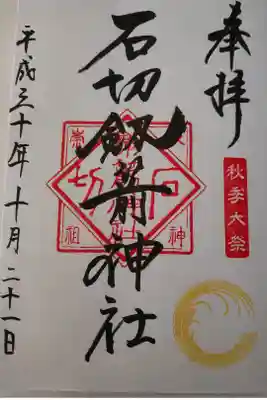 奉拝
秋季大祭
石切劔箭神社
平成三十年十月二十一日